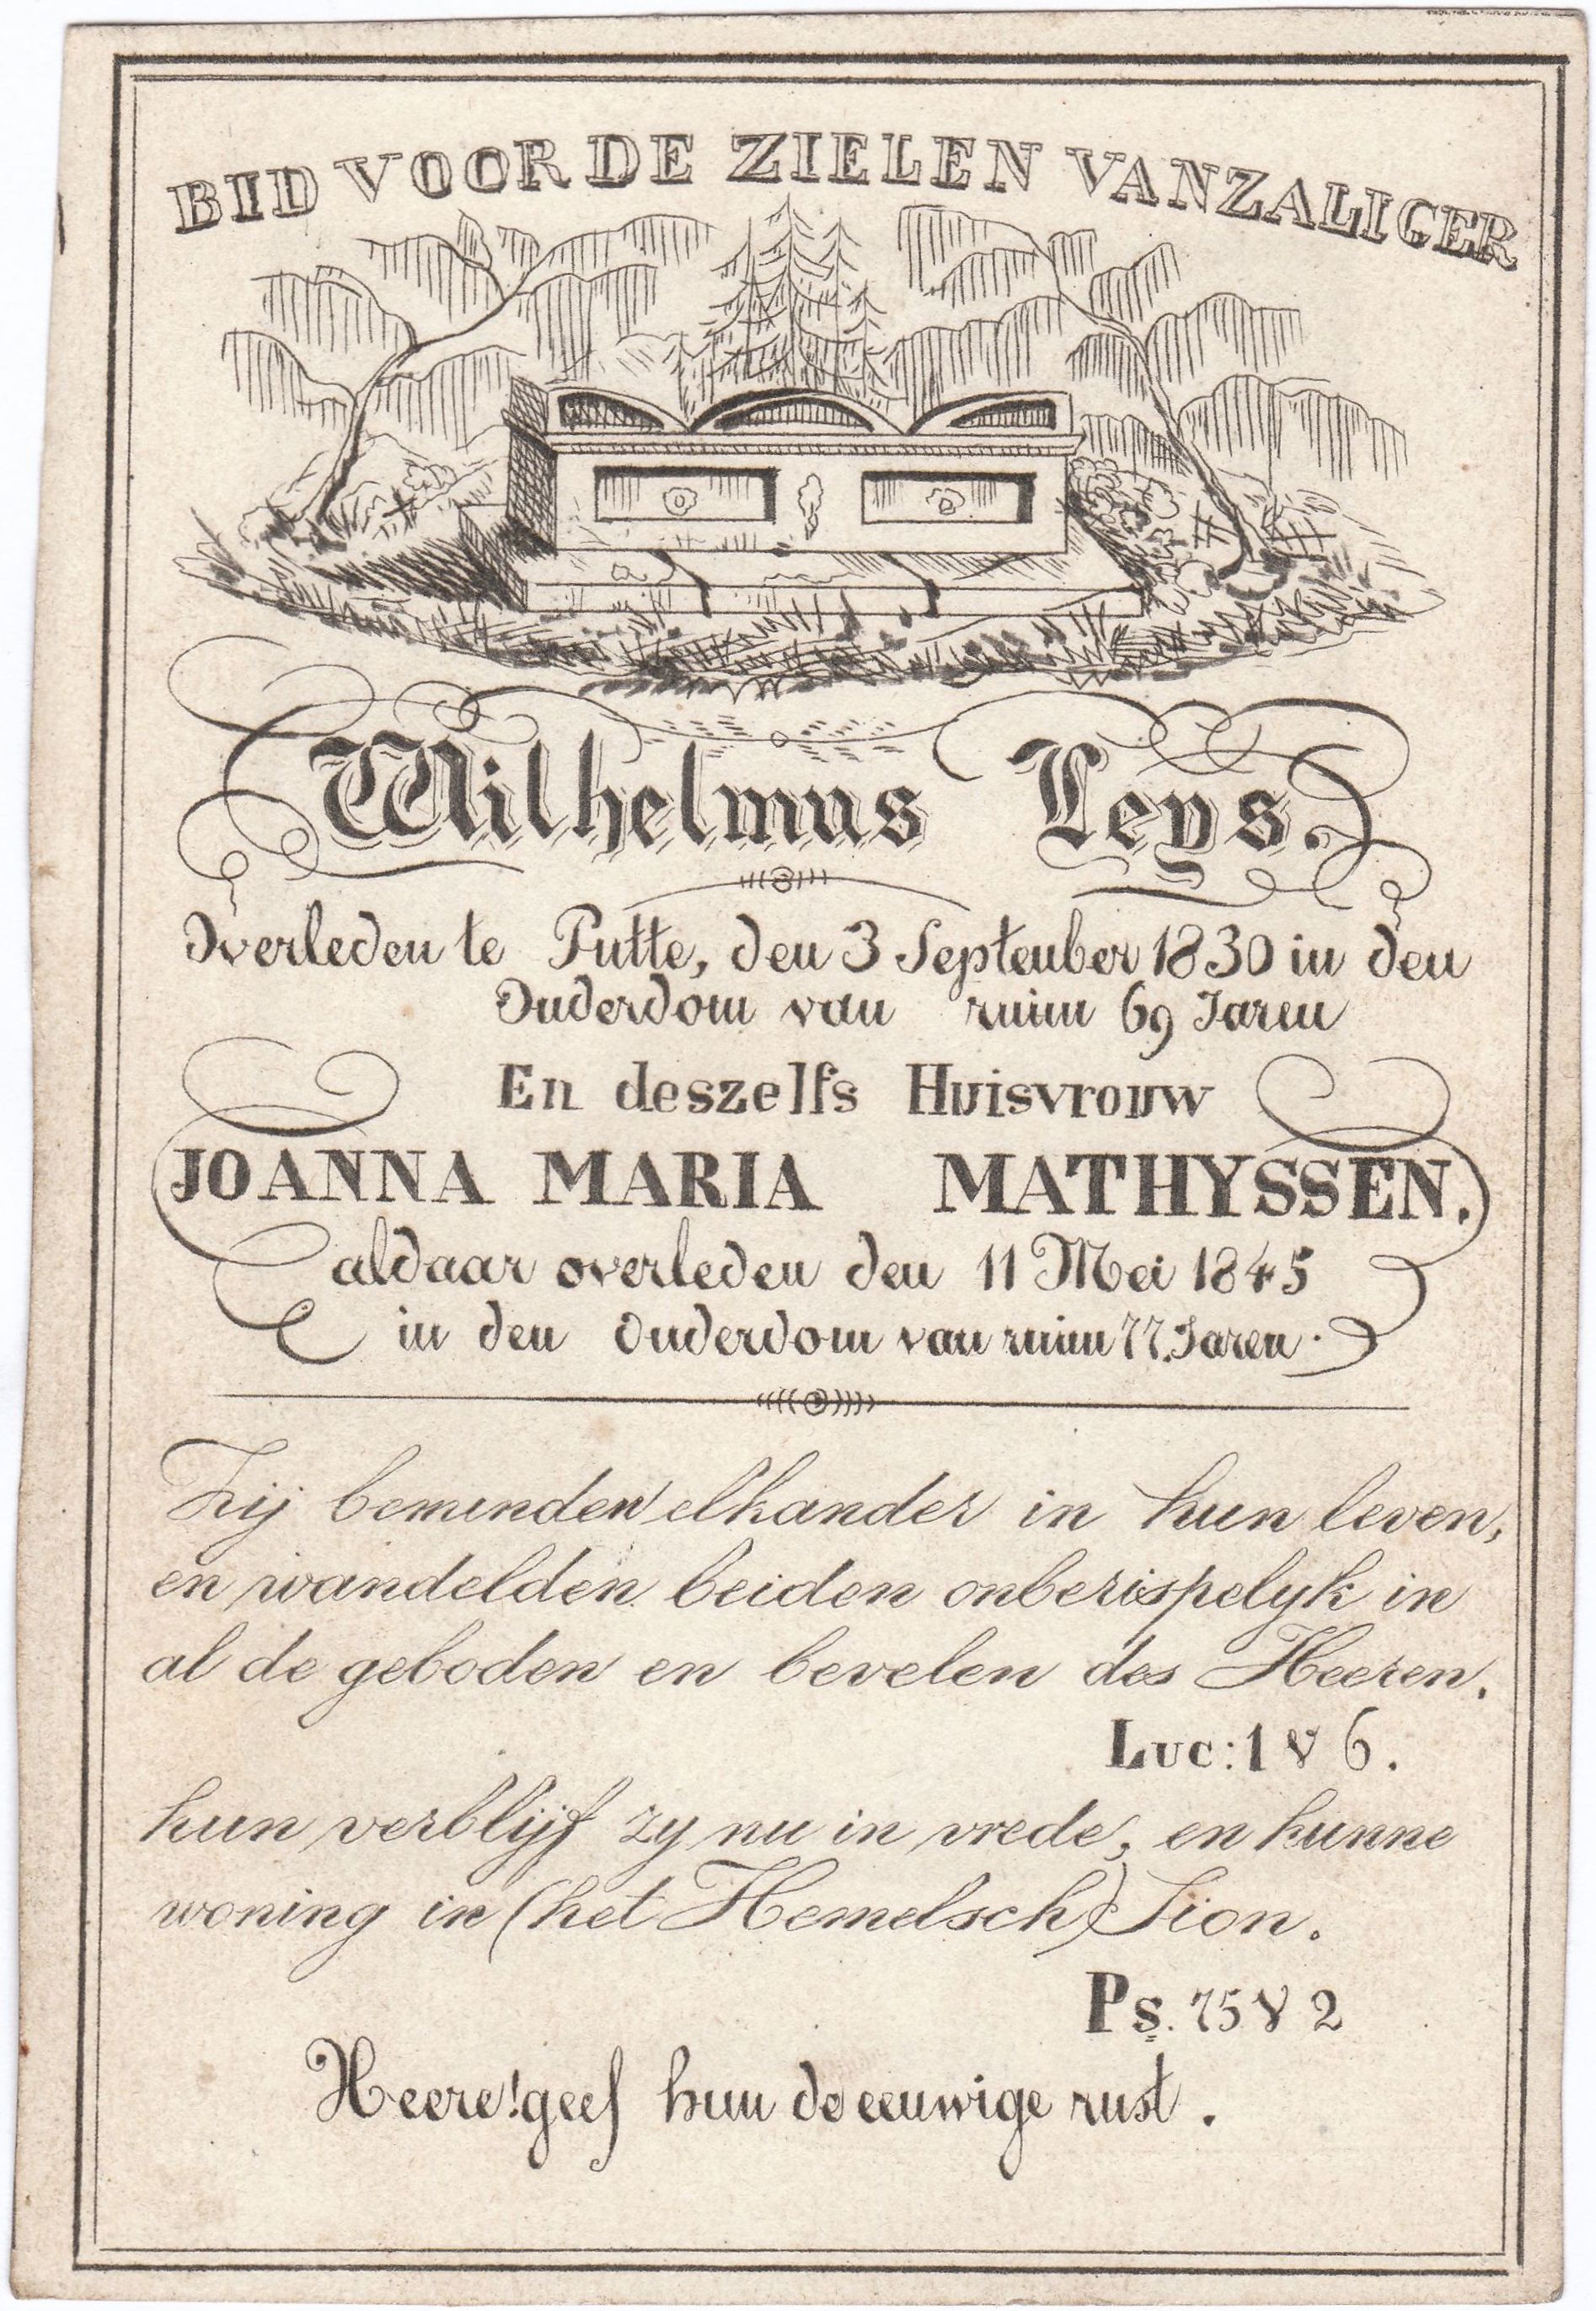 BID VOOR DE ZIELEN VAN ZALIGER
Wilhelmus Leys.
Overleden te Putte, den 3 September 1830 in den
Ouderdom van ruim 69 Jaren
En deszelfs Huisvrouw
JOANNA MARIA MATHYSSEN.
aldaar overleden den 11 Mei 1845
in den Ouderdom van ruim 77. Jaren.
Zij beminden elkander in hun leven,
en wandelden beiden onberispelyk in
al de geboden en bevelen des Heeren.
Luc: 1 V 6.
hun verblijf zy nu in vrede, en hunne
woning in (het Hemelsch) Sion.
Ps. 75 V 2
Heere! geef hun de eeuwige rust.